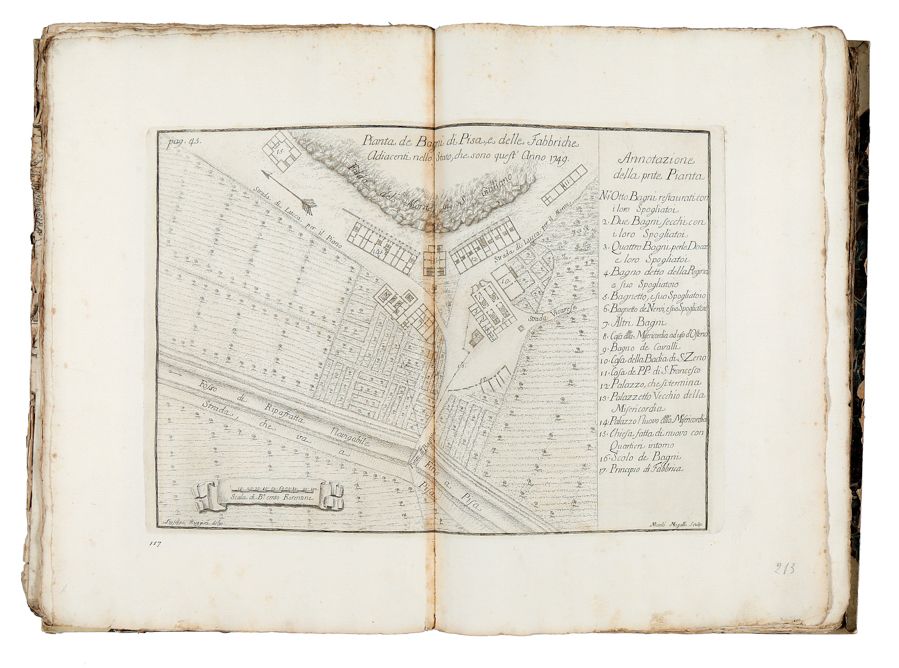 pag. 45.
Pianta de Bagni di Pisa, e delle Fabbriche
Adiacenti nello Stato, che sono quest' Anno 1749.
Strada di Lucca per il Piano
Strada di Lucca per il Monte
Monte S. Giuliano
Strada Vicarese
Fosso di Ripafratta Navigabile
Strada che va a Pisa
Scala di Bª cento Fiorentine
Annotazione
della pnte Pianta
Nº1 Otto Bagni restaurati con
i loro Spogliatoi
2. Due Bagni secchi con
i loro Spogliatoi
3. Quattro Bagni per le Docce
e loro Spogliatoi
4. Bagno detto della Regina
e suo Spogliatoio
5. Bagnetto, e suo Spogliatoio
6. Bagneto de Nervi, e suo Spogliatoio
7. Altri Bagni
8. Casa della Misericordia ad uso d'Osteria
9. Bagno de Cavalli
10. Casa della Badia di S. Zeno
11. Casa de PP. di S. Francesco
12. Palazzo, che si termina
13. Palazzetto Vecchio della
Misericordia
14. Palazzo Nuovo della Misericordia
15. Chiesa fatta di nuovo con
Quartieri intorno
16. Scalo de Bagni
17. Principio di Fabbrica
117
213